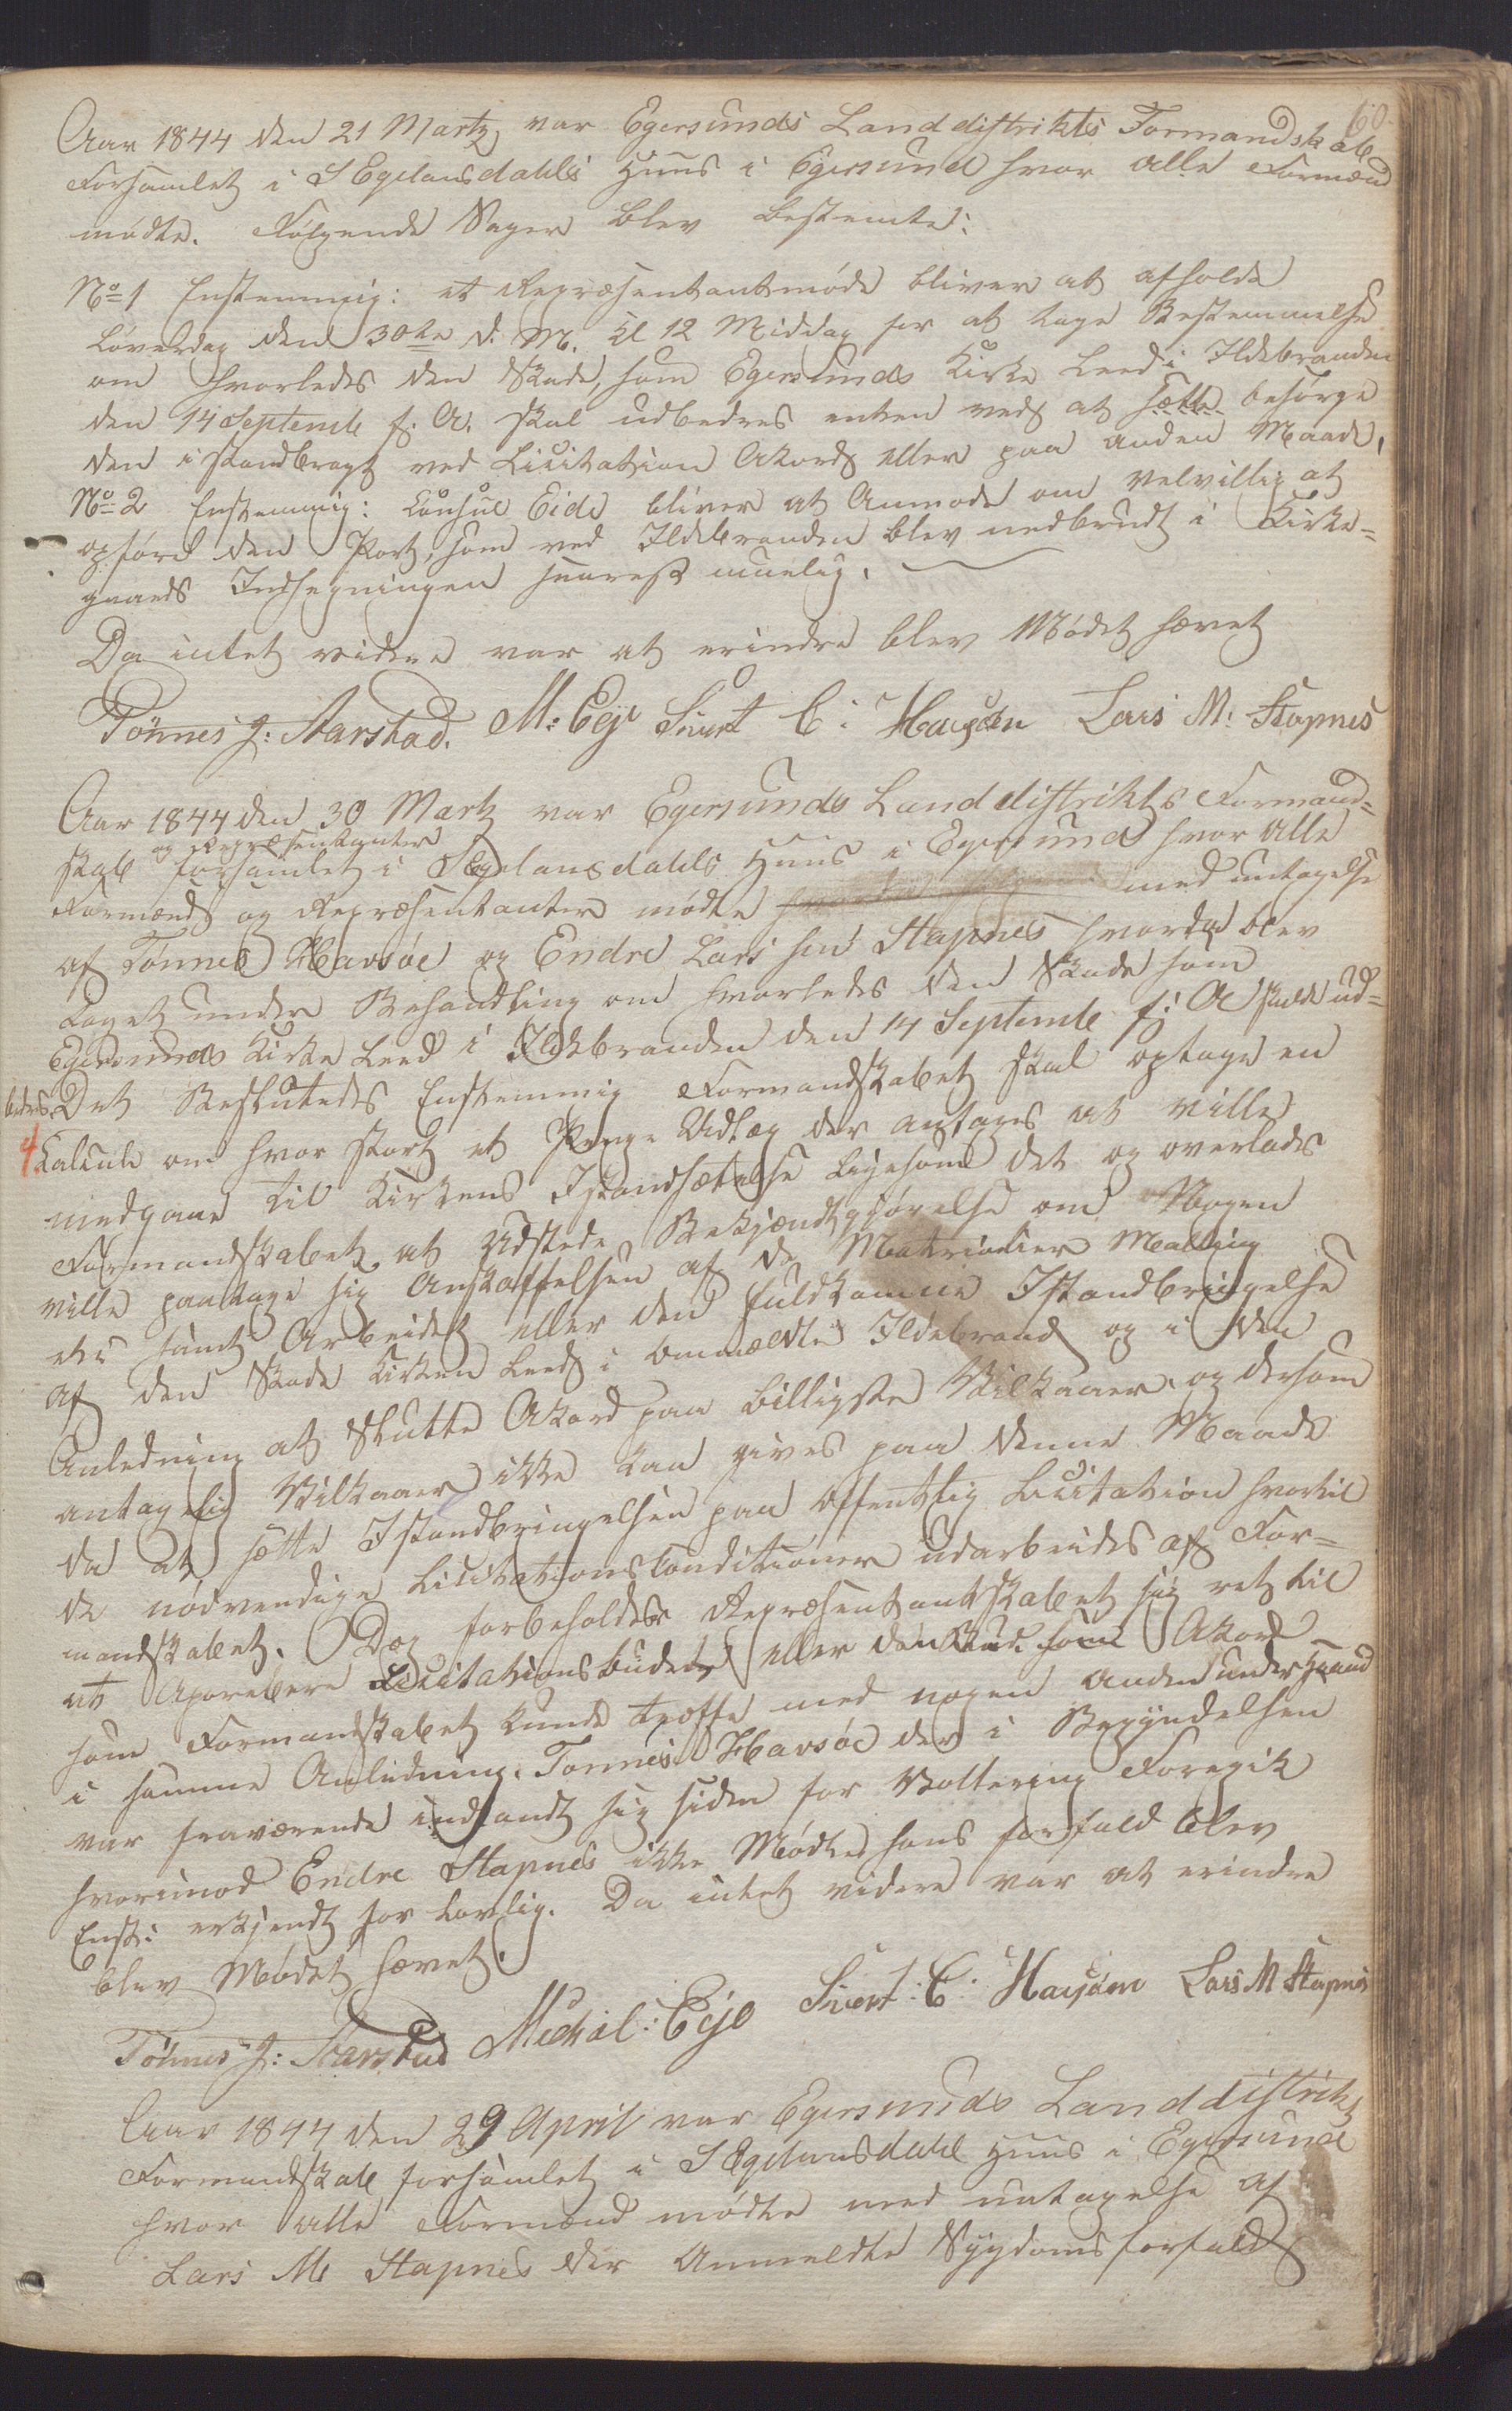 60.
Aar 1844 den 21 Martz var Egersunds Landdistrikts Formandskab
Forsamlet i S Egelandsdahls Huus i Egersund hvor alle Formænd
mødte. Følgende Sager blev bestemte:
No 1 Enstemmig: et Repræsentantmøde bliver at afholde
Løverdag den 30te d. M. Kl 12 Middag for at tage Bestemmelse
om hvorledes den Skade, som Egersunds Kirke Leed i Ildebranden
den 14 Septembr f. A. skal udbedres enten ved at sætte besørge
den istandbragt ved Licitation Akord eller paa anden Maade.
No 2 Enstemmig: Consul Eide bliver at Anmode om velvillig at
opføre den Port, som ved Ildebranden blev nedbrudt i Kirke-
gaards Indhegningen snarest muelig.
Da intet videre var at erindre blev Mødet hævet
Tönnes J: Aarstad. M: Eje Sivert C: Hausåen Lars M: Stapnes
Aar 1844 den 30 Martz var Egersunds Landdistrikts Formand-
og Repræsentanter
skab forsamlet i S Egelansdahls Huus i Egersund hvor alle
Formænd og Repræsentanter mødte med untagelse
af Tønnes Havsøe og Endre Lars sen Stapnes hvorda blev
taget under Behandling om hvorledes den Skade som
Egersunds Kirke Leed i Ildebranden den 14 Septembr f: A skulde ud-
bedres. Det Besluttedes Enstemmig Formandskabet skal optage en
Calcule om hvor stort et Penge Udlæg der antages at ville
medgaae til Kirkens Istandsættelse ligesom det og overlades
Formandskabet at Udstede Bekjendtgjørelse om Nogen
ville paatage sig Anskaffelsen af de Materialier Maling
etc samt Arbeidet eller den fuldkomne Istandbringelse
af den Skade Kirken Leed i ommeldte Ildebrand og i den
Anledning at slutte Akord paa billigste Vilkaar, og dersom
antagelig Vilkaar ikke kan gives paa denne Maade
da at sætte Istandbringelsen paa offentlig Licitation hvortil
de nødvendige Licitationsconditioner udarbeides af For-
mandskabet. Dog forbeholder Repræsentantskabet sig ret til
at Aprobere Licitationsbudet eller den Akord
som Formandskabet kunde træffe med nogen anden under Haand
i samme Anledning. Tønnes Havsøe der i Begyndelsen
var fraværende indfandt sig siden før Vottering Foregik
hvorimod Endre Stapnes ikke Mødte hans forfald blev
Enst: erkjendt for lovlig. Da intet videre var at erindre
blev Mødet hævet.
Tönnes J: Aarstad Michal: Eje Sivert: C: Hausåen Lars M Stapnes
Aar 1844 den 29 April var Egersunds Landdistrikts
Formandskab forsamlet i S Egelansdahl Huus i Egersund
hvor alle Formænd mødte med untagelse af
Lars M: Stapnes der Anmeldte Sygdomsforfald